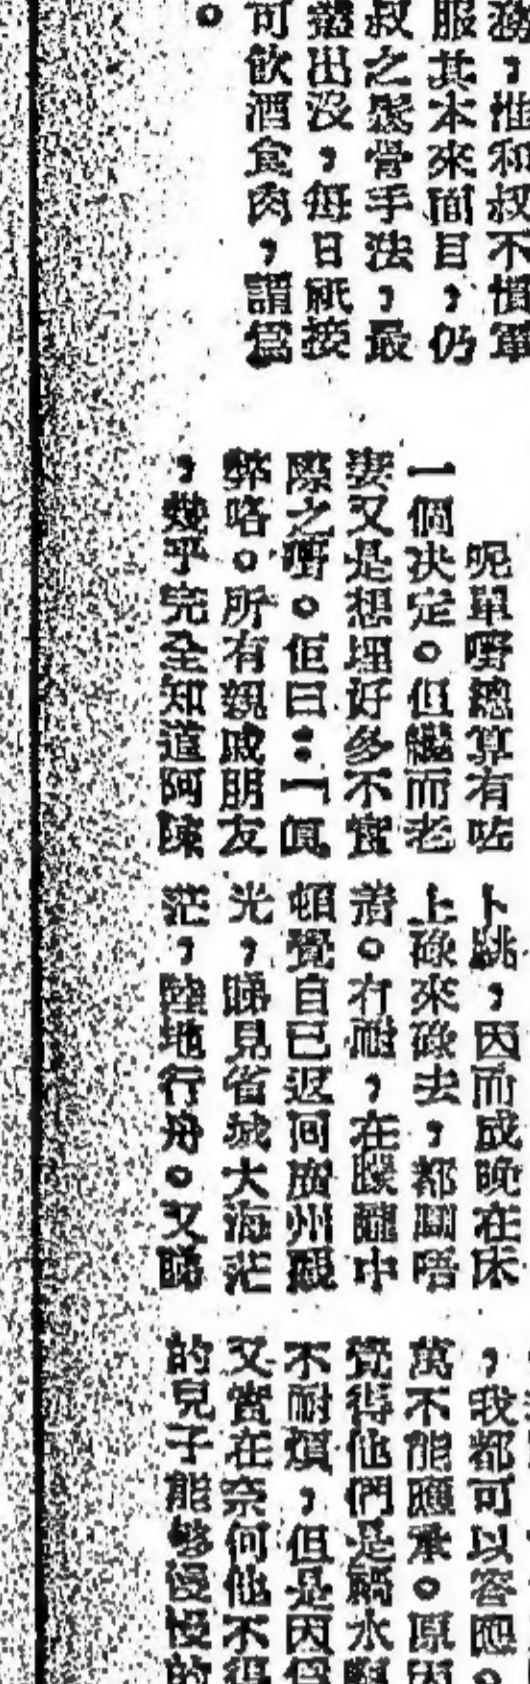 務，惟和叔不慣軍
服其本來面目，仍
叔之駁骨手法，最
出沒，每日祇接
可飲酒食肉，謂爲
。
呢單嘢總算有咗
一個決定。但繼而老
妻又是想埋好多不實
際之嘢。佢曰：「真
弊咯。所有親戚朋友
，幾乎完全知道阿陳
卜跳，因而成晚在床
上碌來碌去，都瞓唔
着。冇耐，在朦朧中
頓覺自己返回廣州觀
光，睇見省城大海茫
茫，陸地行舟。又睇
，我都可以容應。
萬不能應承。原因
覺得他們是禍水
不耐煩，但是因爲
又實在奈何他不得
的兒子能夠慢慢的